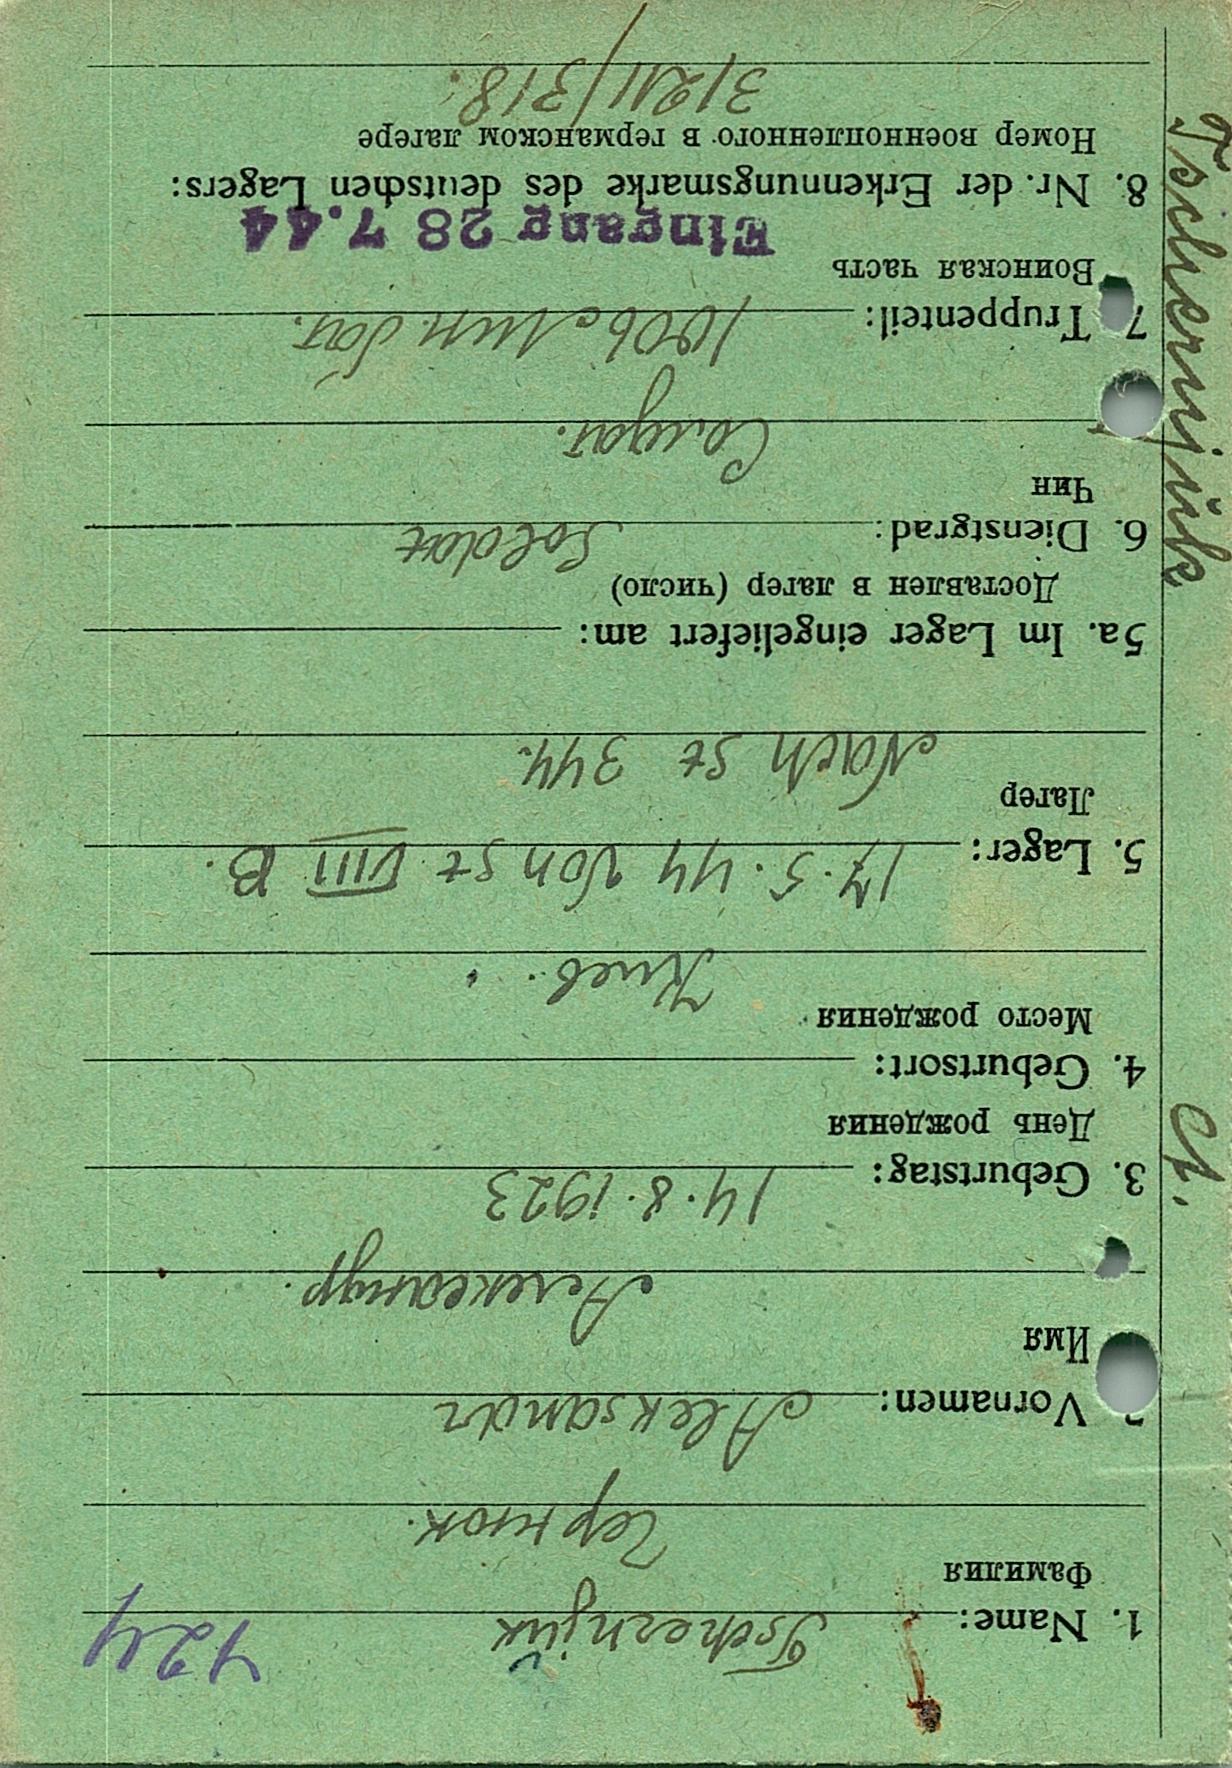 724
1. Name: Tschernjuk
Фамилия
Чернюк.
2. Vornamen: Aleksandr
Имя
Александр.
3. Geburtstag: 14.8.1923
День рождения
4. Geburtsort:
Место рождения
Киев.
5. Lager: 17.5.44 Von St VIII B.
Лагер
Nach St 344.
5a. Im Lager eingeliefert am:
Доставлен в лагер (число)
6. Dienstgrad: Soldat
Чин
Солдат.
7. Truppenteil:
Воинская часть
Eingang 28 7.44
8. Nr. der Erkennungsmarke des deutschen Lagers:
Номер военнопленного в германском лагере
Tschernjuk A.